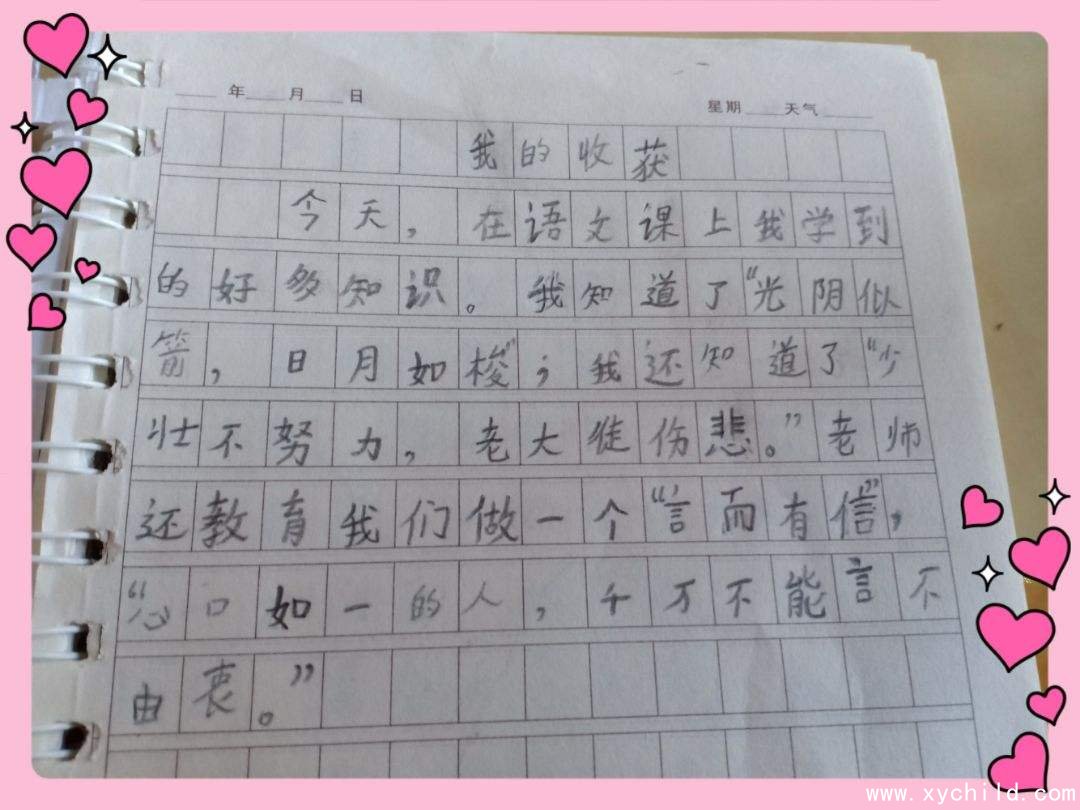 年 月 日 星期 天气
我的收获
今天，在语文课上我学到
的好多知识。我知道了“光阴似
箭，日月如梭”；我还知道了“少
壮不努力，老大徒伤悲。”老师
还教育我们做一个“言而有信”，
“心口如一的人，千万不能言不
由衷。”
www.xychild.com